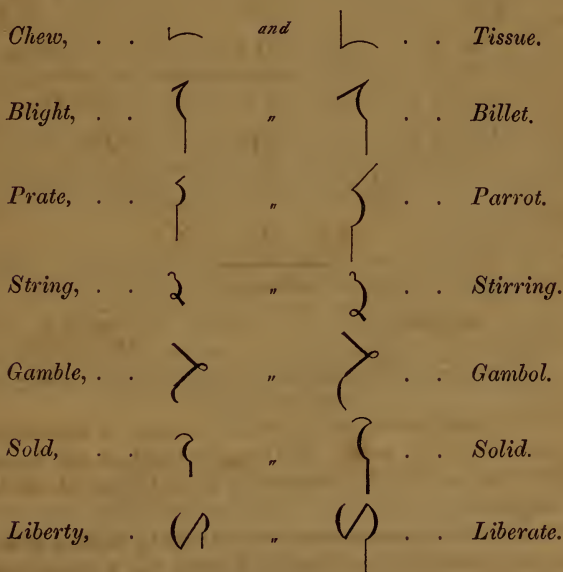 Chew, . . and . . Tissue.
Blight, . . „ . . Billet.
Prate, . . „ . . Parrot.
String, . . „ . . Stirring.
Gamble, . . „ . . Gambol.
Sold, . . „ . . Solid.
Liberty, . „ . . Liberate.